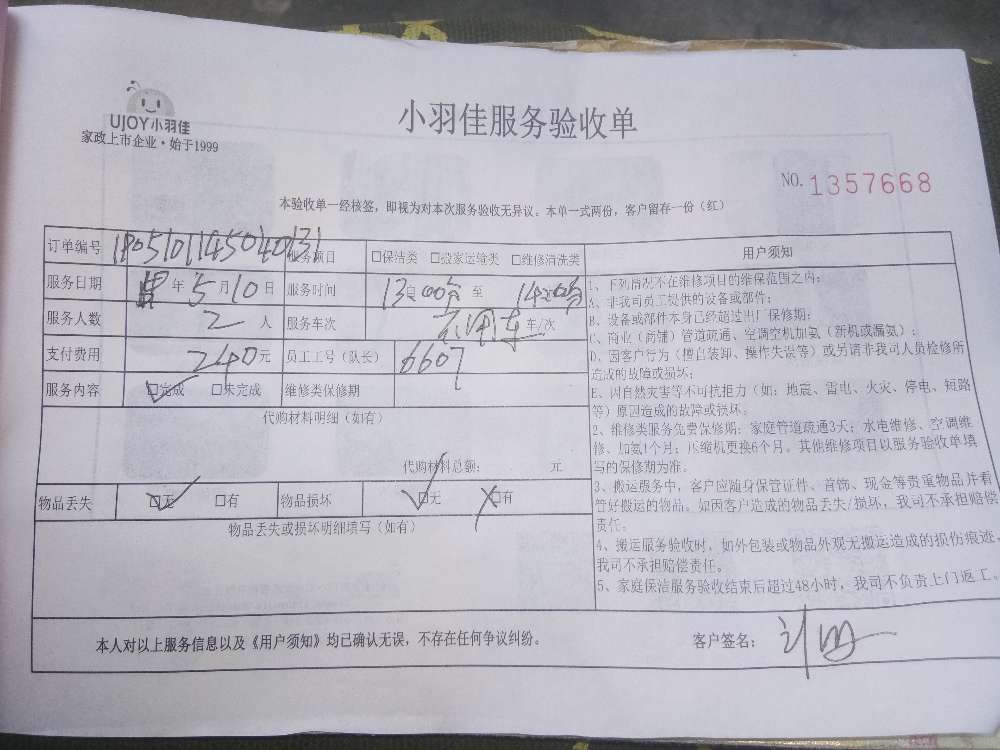 UJOY小羽佳
家政上市企业·始于1999
小羽佳服务验收单
NO. 1357668
本验收单一经核签,即视为对本次服务验收无异议。本单一式两份,客户留存一份(红)
订单编号 服务项目 □保洁类 □搬家运输类 □维修清洗类
服务日期 年 5月10日 服务时间 13 00分 至 14 00分
服务人数 2 人 服务车次 不用车 车/次
支付费用 240元 员工工号(队长) 6607
服务内容 ☑完成 □未完成 维修类保修期
代购材料明细(如有)
代购材料总额: 元
物品丢失 ☑无 □有 物品损坏 ☑无 □有
物品丢失或损坏明细填写(如有)
用户须知
1、下列情况不在维修项目的维保范围之内:
A、非我司员工提供的设备或部件;
B、设备或部件本身已经超过出厂保修期;
C、商业(商铺)管道疏通、空调空机加氨(新机或漏氨);
D、因客户行为(擅自装卸、操作失误等)或另请非我司人员检修所
造成的故障或损坏;
E、因自然灾害等不可抗拒力(如:地震、雷电、火灾、停电、短路
等)原因造成的故障或损坏。
2、维修类服务免费保修期:家庭管道疏通3天;水电维修、空调维
修、加氨1个月;压缩机更换6个月。其他维修项目以服务验收单填
写的保修期为准。
3、搬运服务中,客户应随身保管证件、首饰、现金等贵重物品并看
管好搬运的物品。如因客户造成的物品丢失/损坏,我司不承担赔偿
责任。
4、搬运服务验收时,如外包装或物品外观无搬运造成的损伤痕迹,
我司不承担赔偿责任。
5、家庭保洁服务验收结束后超过48小时,我司不负责上门返工。
本人对以上服务信息以及《用户须知》均已确认无误,不存在任何争议纠纷。 客户签名: